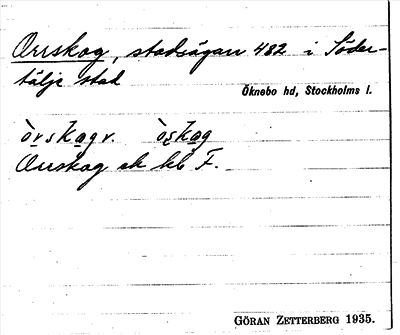 Orrskog, stadsägan 482 i Söder-
tälje stad
Öknebo hd, Stockholms l.
Orrskog ek kb F.
GÖRAN ZETTERBERG 1935.